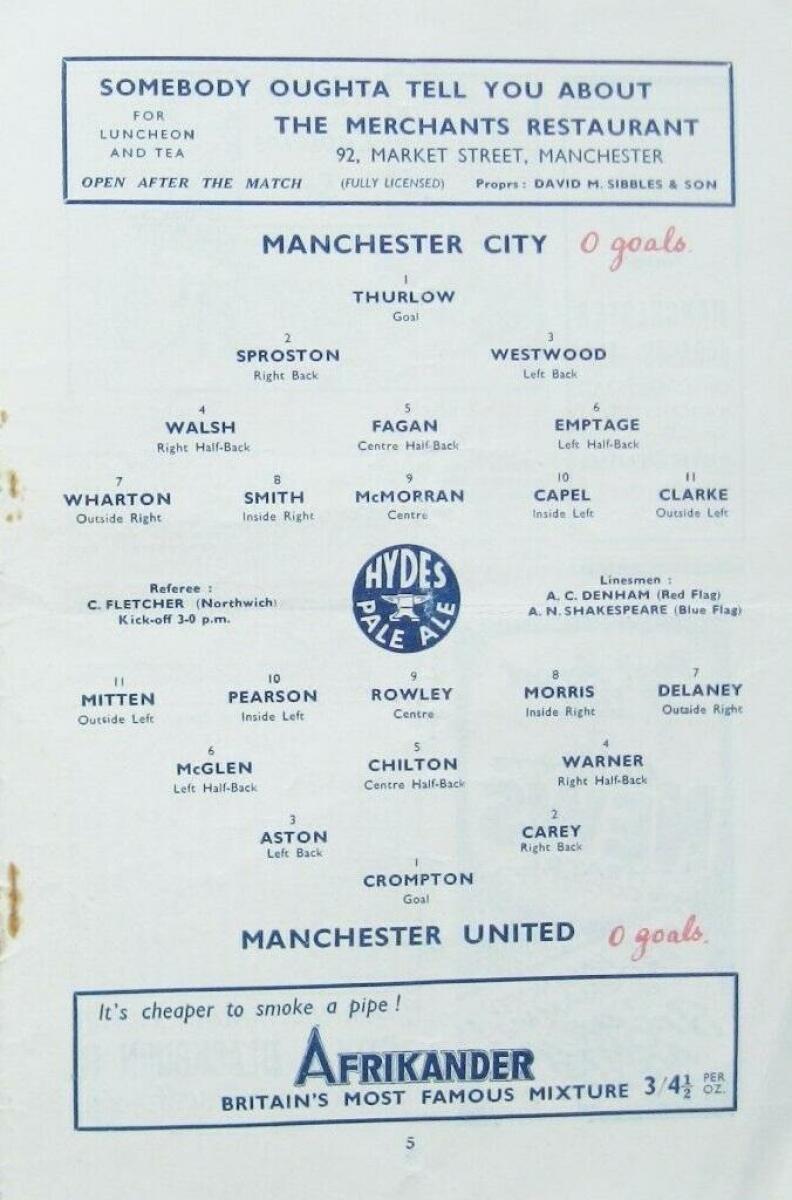 SOMEBODY OUGHTA TELL YOU ABOUT
FOR
LUNCHEON
AND TEA
THE MERCHANTS RESTAURANT
92, MARKET STREET, MANCHESTER
OPEN AFTER THE MATCH (FULLY LICENSED) Proprs: DAVID M. SIBBLES & SON
MANCHESTER CITY 0 goals.
1
THURLOW
Goal
2 3
SPROSTON WESTWOOD
Right Back Left Back
4 5 6
WALSH FAGAN EMPTAGE
Right Half-Back Centre Half-Back Left Half-Back
7 8 9 10 11
WHARTON SMITH McMORRAN CAPEL CLARKE
Outside Right Inside Right Centre Inside Left Outside Left
Referee :
C. FLETCHER (Northwich)
Kick-off 3-0 p.m.
HYDES
PALE ALE
Linesmen :
A. C. DENHAM (Red Flag)
A. N. SHAKESPEARE (Blue Flag)
11 10 9 8 7
MITTEN PEARSON ROWLEY MORRIS DELANEY
Outside Left Inside Left Centre Inside Right Outside Right
6 5 4
McGLEN CHILTON WARNER
Left Half-Back Centre Half-Back Right Half-Back
3 2
ASTON CAREY
Left Back Right Back
1
CROMPTON
Goal
MANCHESTER UNITED 0 goals.
It's cheaper to smoke a pipe!
AFRIKANDER
BRITAIN'S MOST FAMOUS MIXTURE 3/4½ PER OZ.
5